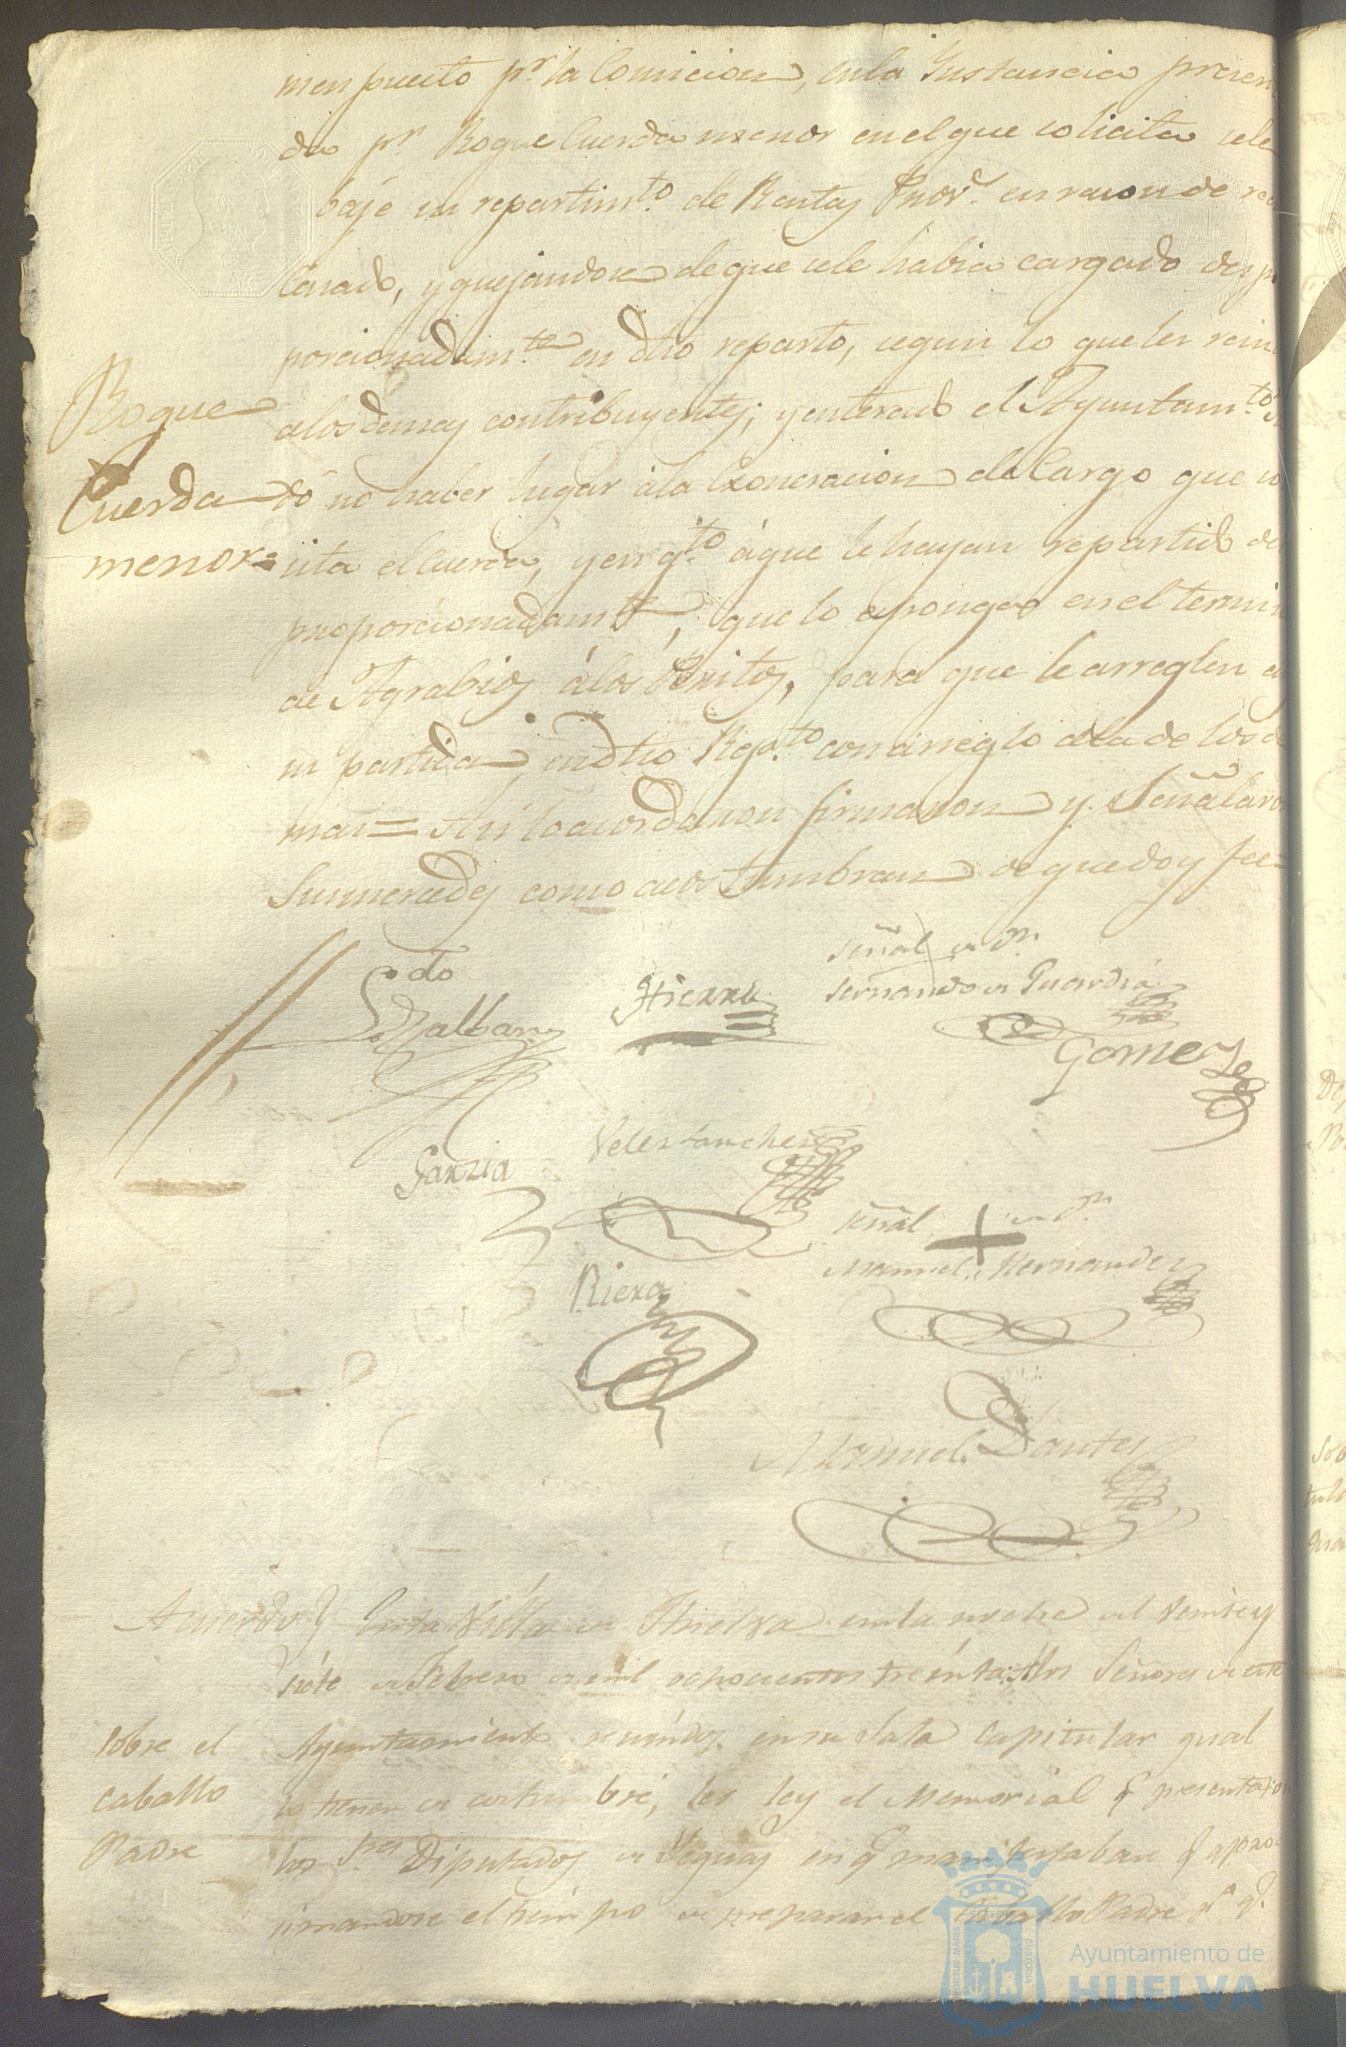 men puesto pr. la Comicion, en la Instancia presen
da pr. Roque Cuerda menor en el que solicita cele
baje su repartimto. de Rentas Prove. en rason de
Casado, y quejandose de que cele habia cargado despr
porcionadamte. en dho reparto, segun lo que les
alos demas contribuyentes; y enterado el Ayuntamto.
dó no haber lugar ála Exoneracion del Cargo que so
sita el Cuerda, y en qto. áque le hayan repartido de
proporcionadamte, que lo esponga en el termin
de Agrabios álos Peritos, para que le arreglen
su partida en dho Repto. con arreglo ala de los de
mas = Asi lo acordaron firmaron y Señalaron
Sus mercedes como acostumbran de que doy fee =
Roque
Cuerda
menor =
Ldo.
Hierro
Señal de Dn.
Fernando de Guardia
Gomez
Garzia
Velez Sanchez
Señal de Dn.
Manuel Hernandez
Riera
Manuel Dantes
Acuerdo En la Villa de Huelva en la noche del veinte y
siete de Febrero de mil ochocientos treinta: Los Señores de este
Ayuntamiento reunidos en su Sala Capitular qual
lo tienen de costumbre, les ley el Memorial q presentaron
los Sres Diputados de Yeguas en q manifestaban q aprocsi
simandose el tiempo de preparar el Caballo Padre pa. q.
sobre el
caballo
Padre
Ayuntamiento de
HUELVA